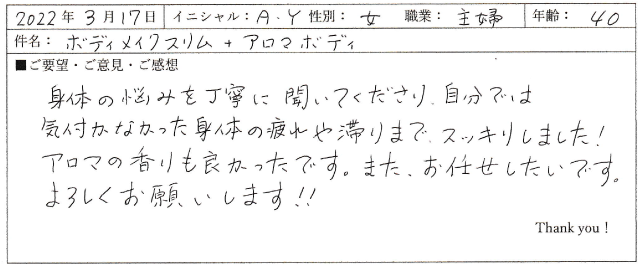 2022年3月17日 イニシャル：A.Y 性別：女 職業：主婦 年齢：40
件名：ボディメイクスリム+アロマボディ
■ご要望・ご意見・ご感想
身体の悩みを丁寧に聞いてくださり、自分では
気付かなかった身体の疲れや滞りまで、スッキリしました!
アロマの香りも良かったです。また、お任せしたいです。
よろしくお願いします!!
Thank you！